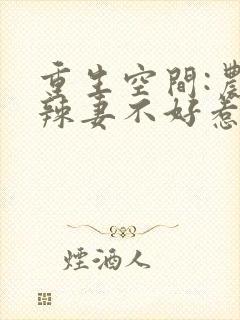 重生空間:農
辣妻不好惹
煙酒人